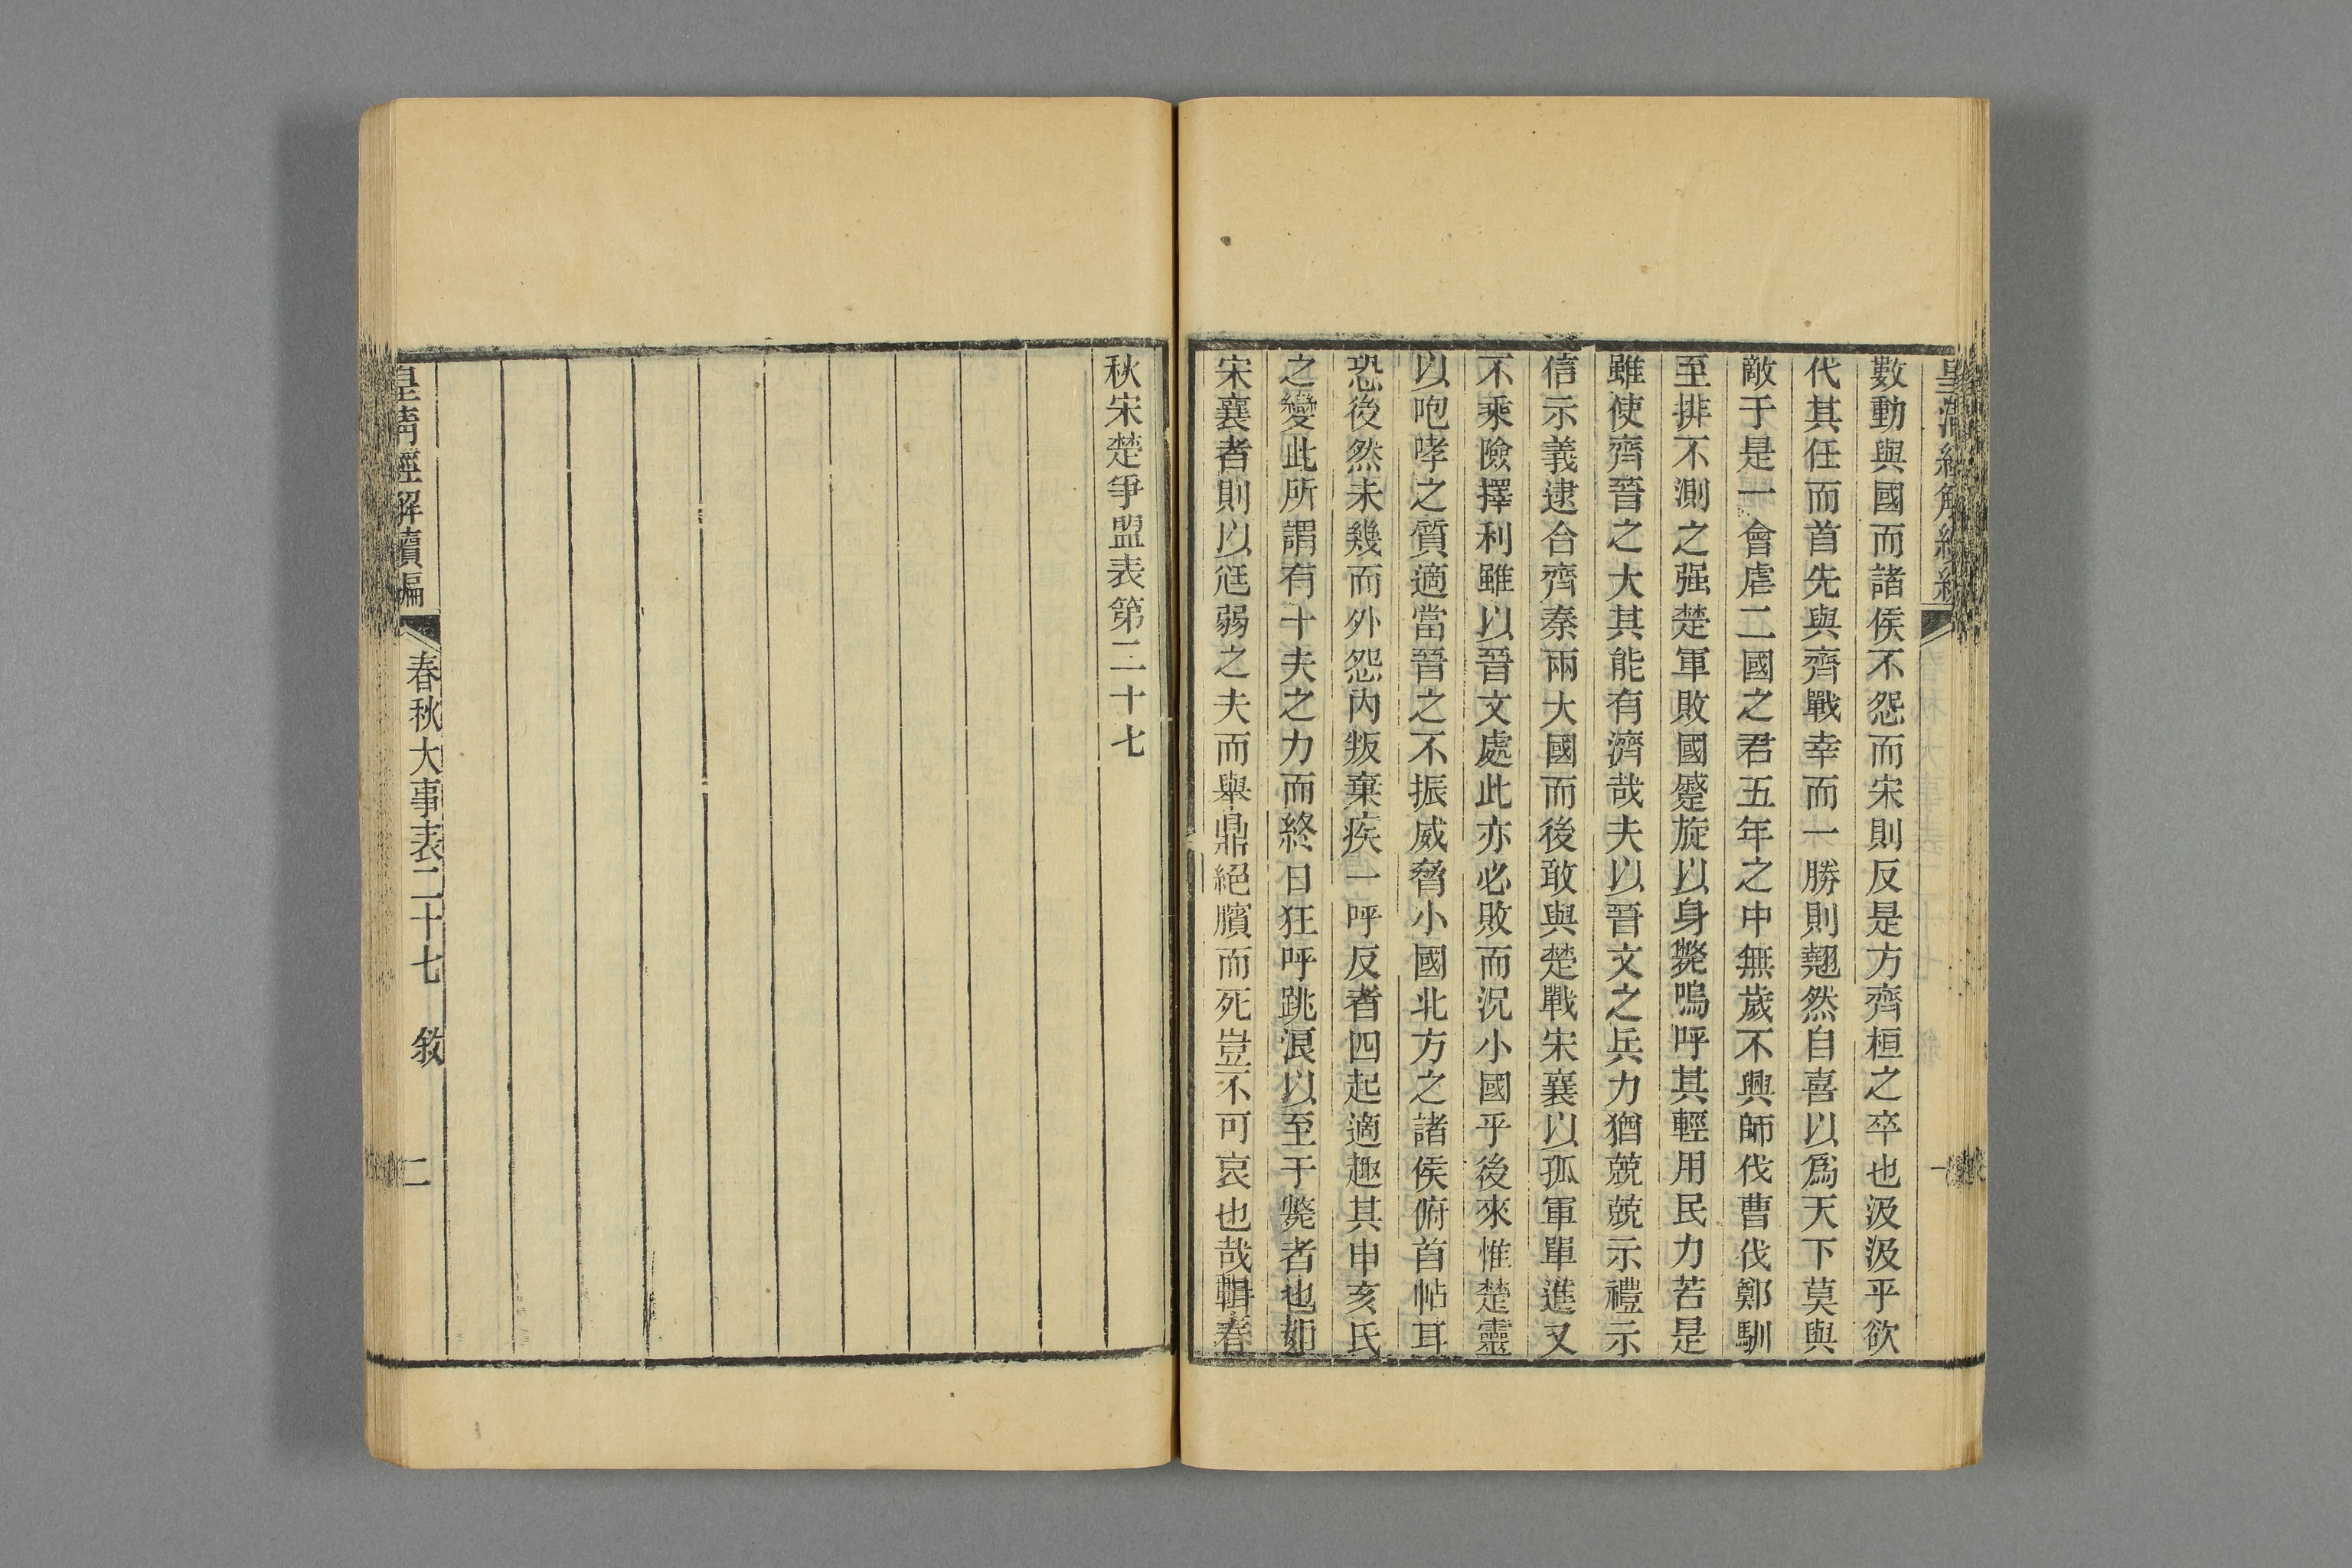 數動與國而諸侯不怨而宋則反是方齊桓之卒也汲汲乎欲
代其任而首先與齊戰幸而一勝則翹然自喜以爲天下莫與
敵于是一會虐二國之君五年之中無歲不興師伐曹伐鄭馴
至排不測之强楚軍敗國蹙旋以身斃嗚呼其輕用民力若是
雖使齊晉之大其能有濟哉夫以晉文之兵力猶兢兢示禮示
信示義逮合齊秦兩大國而後敢與楚戰宋襄以孤軍單進又
不乘險擇利雖以晉文處此亦必敗而況小國乎後來惟楚靈
以咆哮之質適當晉之不振威脅小國北方之諸侯俯首帖耳
恐後然未幾而外怨內叛棄疾一呼反者四起適趣其申亥氏
之變此所謂有十夫之力而終日狂呼跳浪以至于斃者也如
宋襄者則以尫弱之夫而舉鼎絕臏而死豈不可哀也哉輯春
秋宋楚爭盟表第二十七
皇清經解續編
春秋大事表二十七
敘
二